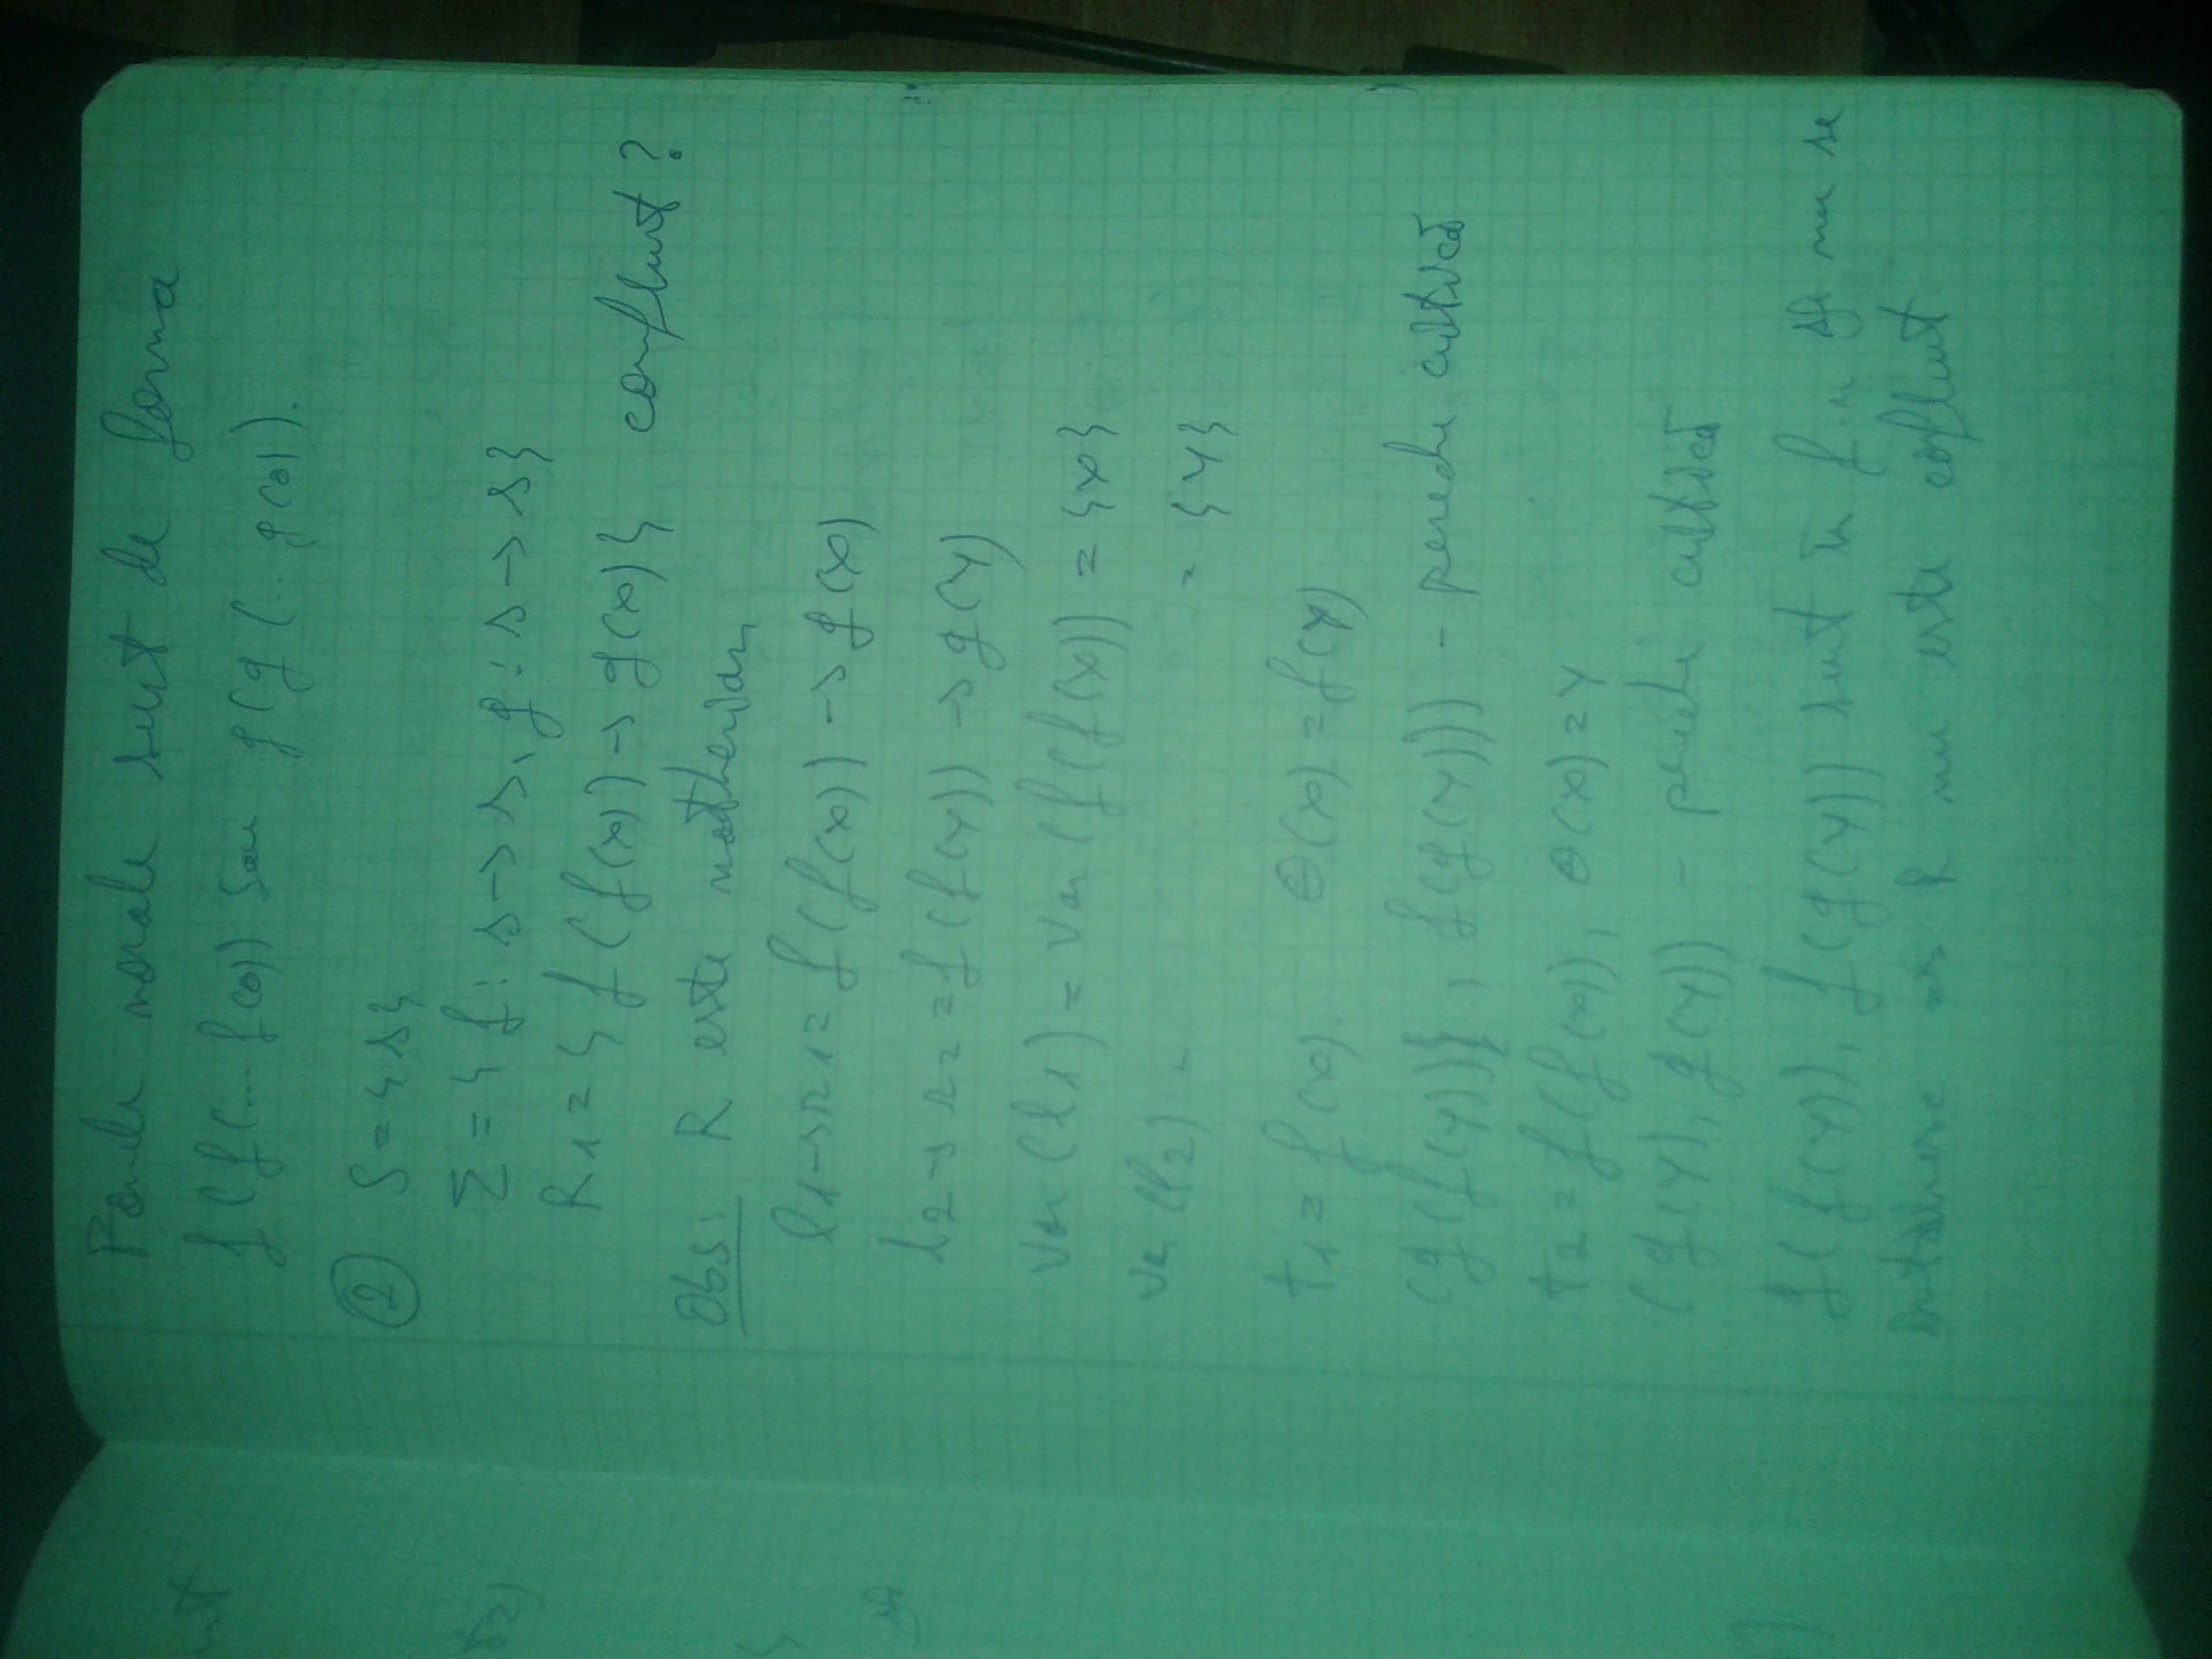 Formele normale sunt de forma
f(f(... f(0)) sau g(g(.. g(0)).
② S = {s}
Σ = { f : s → s, g : s → s}
R1 = { f(f(x)) → g(x)} confluent?
Obs: R este noetherian
l1 → r1 = f(f(x)) → g(x)
l2 → r2 = f(f(y)) → g(y)
Var(l1) = Var(f(f(x)) = {x}
Var(l2) = = {y}
t1 = f(x). θ(x) = f(y)
(g(f(y)), f(g(y))) - pereche critică
t2 = f(f(x)), θ(x) = y
(g(y), g(y)) - pereche critică
g(f(y)), f(g(y)) sunt în f.n și nu se
intalnesc => R nu este confluent.
nt
t2)
}
și
)